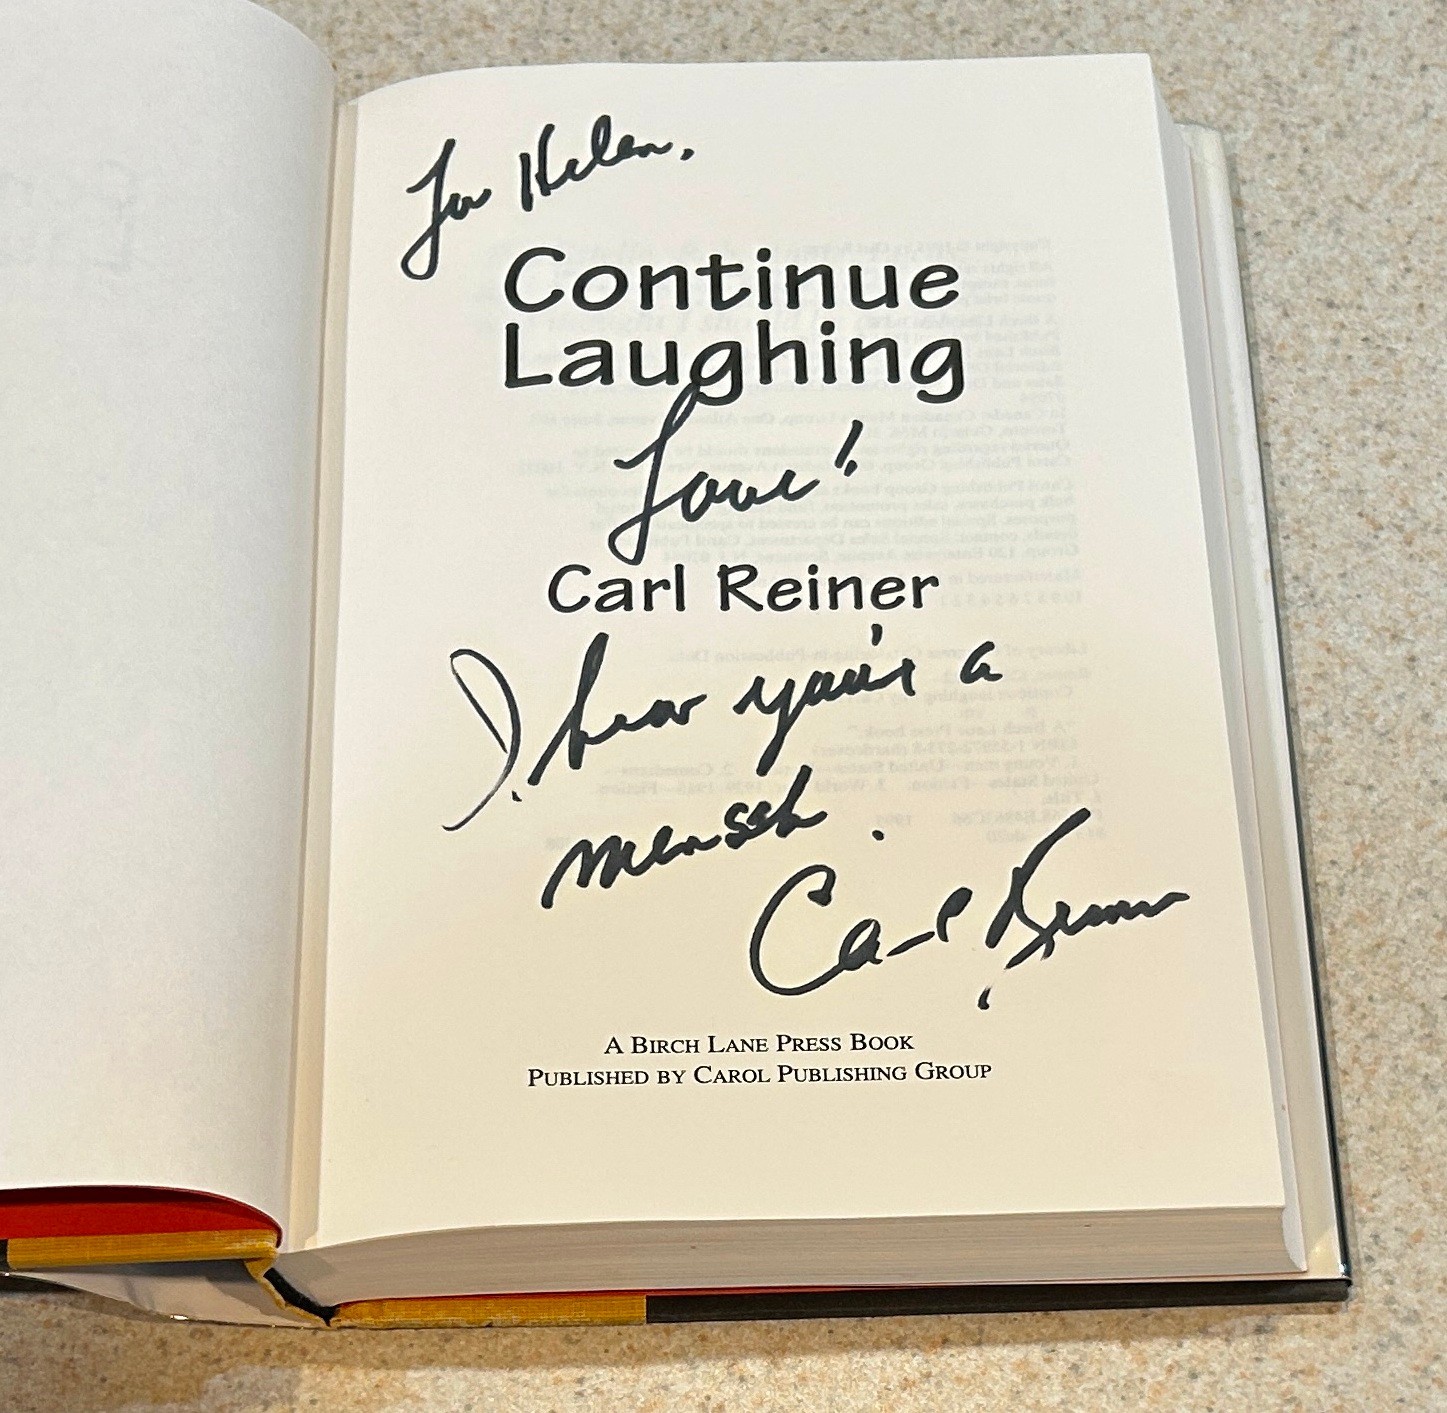 For Helen,
Continue
Laughing
Love!
Carl Reiner
I hear you're a
mensch.
Carl Reiner
A Birch Lane Press Book
Published by Carol Publishing Group